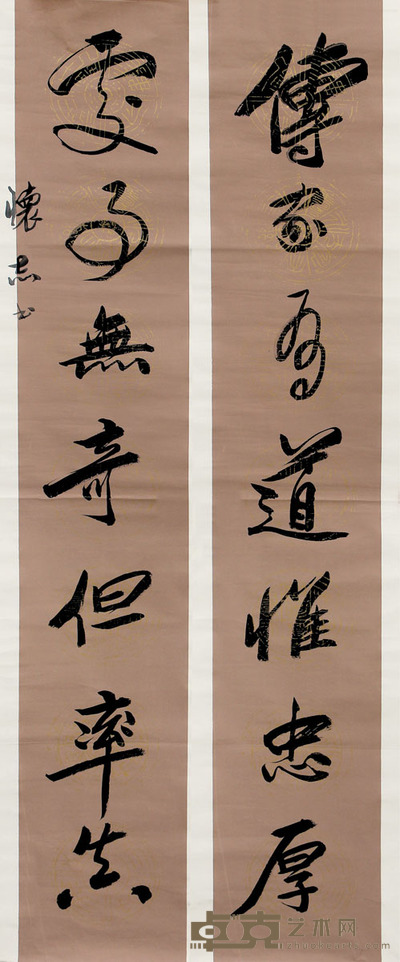 傳家有道惟忠厚
處事無奇但率真
懷志書
卓克艺术网